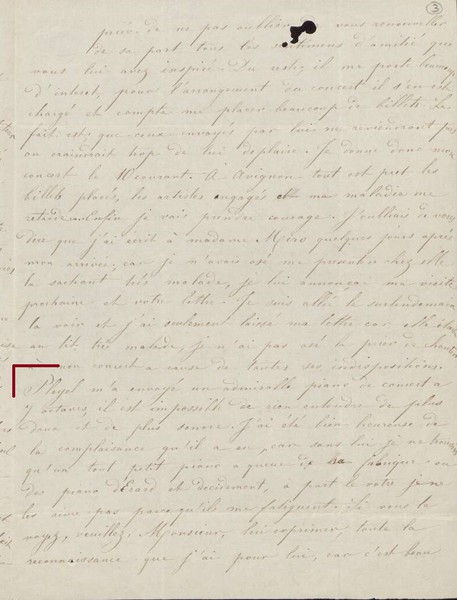 3
prié de ne pas oublier de vous renouveller
de sa part tous les sentimens d'amitié que
vous lui avez inspiré. Du reste il me porte beaucoup
d'intérêt, pour l'arrangement du concert il s'en est
chargé et compte me placer beaucoup de billets. Le
fait est que ceux envoyés par lui ne reviendront pas
on craindrait trop de lui déplaire. Je donne donc mon
concert le 10 courant. À Avignon tout est prêt les
billets placés, les artistes engagés et ma maladie me
retarde. Enfin je vais prendre courage. J'oubliais de vous
dire que j'ai écrit à madame Miro quelques jours après
mon arrivée, car je n'avais osé me présenter chez elle
la sachant très malade, je lui annonçai ma visite
prochaine et votre lettre. Je suis allé le surlendemain
la voir et j'ai seulement laissé ma lettre car elle était
au lit très malade, je n'ai pas osé la prier de chanter
à mon concert a cause de toutes ses indispositions.
Pleyel m'a envoyé un admirable piano de concert a
7 octaves, il est impossible de rien entendre de plus
doux et de plus sonore. J'ai été bien heureuse de
la complaisance qu'il a eu, car sans lui je ne trouvais
qu'un tout petit piano a queue de sa fabrique ou
des piano d'Erard et décidement, à part le votre je ne
les aime pas parcequ'ils me fatiguent. Si vous le
voyez, veuillez, Monsieur, lui exprimer toute la
reconnaissance que j'ai pour lui, car c'est bien